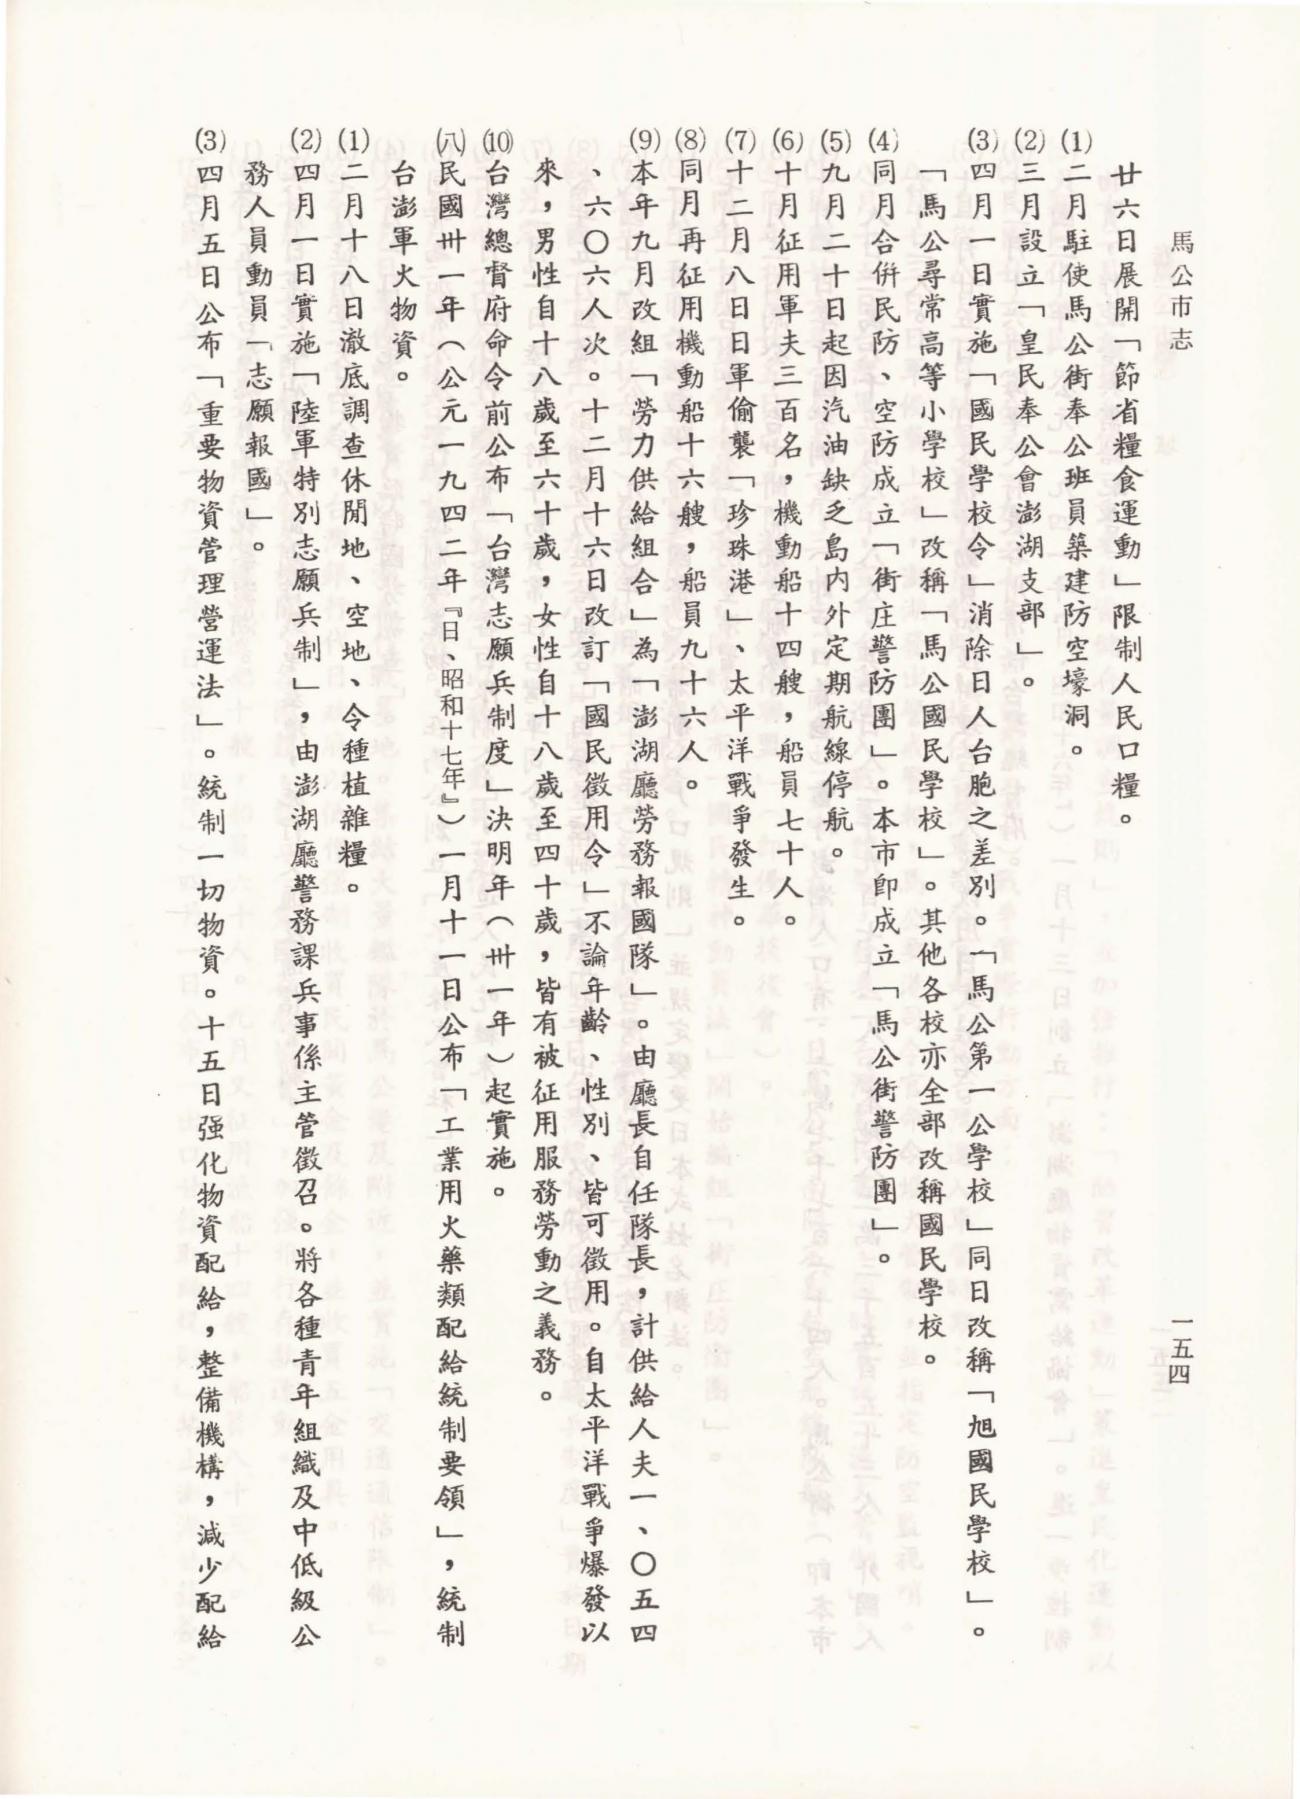 馬公市志
一五四
廿六日展開「節省糧食運動」限制人民口糧。
(1)二月駐使馬公街奉公班員築建防空壕洞。
(2)三月設立「皇民奉公會澎湖支部」。
(3)四月一日實施「國民學校令」消除日人台胞之差別。「馬公第一公學校」同日改稱「旭國民學校」。
「馬公尋常高等小學校」改稱「馬公國民學校」。其他各校亦全部改稱國民學校。
(4)同月合倂民防、空防成立「街庄警防團」。本市卽成立「馬公街警防團」。
(5)九月二十日起因汽油缺乏島內外定期航線停航。
(6)十月征用軍夫三百名，機動船十四艘，船員七十人。
(7)十二月八日日軍偷襲「珍珠港」、太平洋戰爭發生。
(8)同月再征用機動船十六艘，船員九十六人。
(9)本年九月改組「勞力供給組合」為「澎湖廳勞務報國隊」。由廳長自任隊長，計供給人夫一、〇五四
、六〇六人次。十二月十六日改訂「國民徵用令」不論年齡、性別、皆可徵用。自太平洋戰爭爆發以
來，男性自十八歲至六十歲，女性自十八歲至四十歲，皆有被征用服務勞動之義務。
(10)台灣總督府命令前公布「台灣志願兵制度」決明年（卅一年）起實施。
(八)民國卅一年（公元一九四二年『日、昭和十七年』）一月十一日公布「工業用火藥類配給統制要領」，統制
台澎軍火物資。
(1)二月十八日澈底調查休閒地、空地、令種植雜糧。
(2)四月一日實施「陸軍特別志願兵制」，由澎湖廳警務課兵事係主管徵召。將各種青年組織及中低級公
務人員動員「志願報國」。
(3)四月五日公布「重要物資管理營運法」。統制一切物資。十五日强化物資配給，整備機構，減少配給